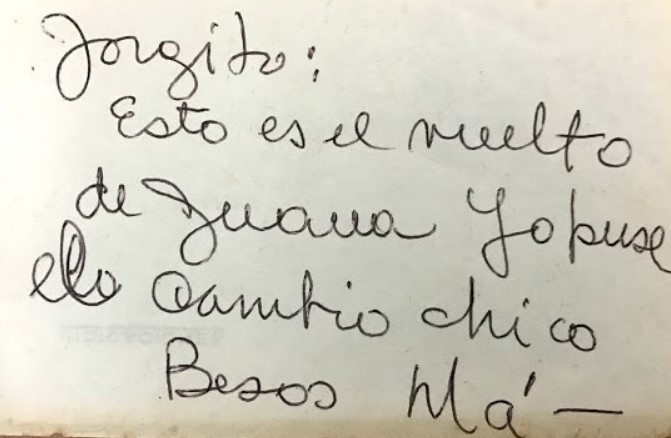 Jorgito:
Esto es el vuelto
de Juana Yo puse
el cambio chico
Besos Má—